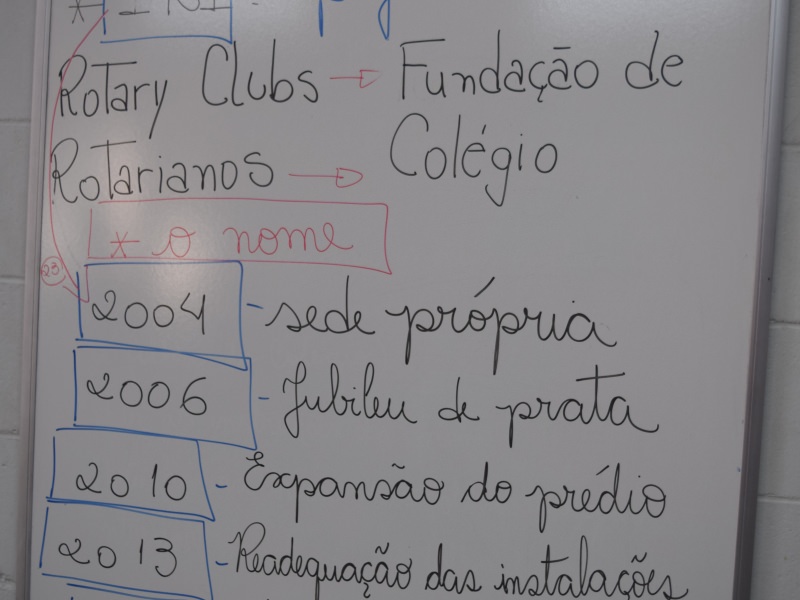 Rotary Clubs → Fundação de
Colégio
Rotarianos →
* o nome
23
2004 - sede própria
2006 - Jubileu de prata
2010 - Expansão do prédio
2013 - Readequação das instalações